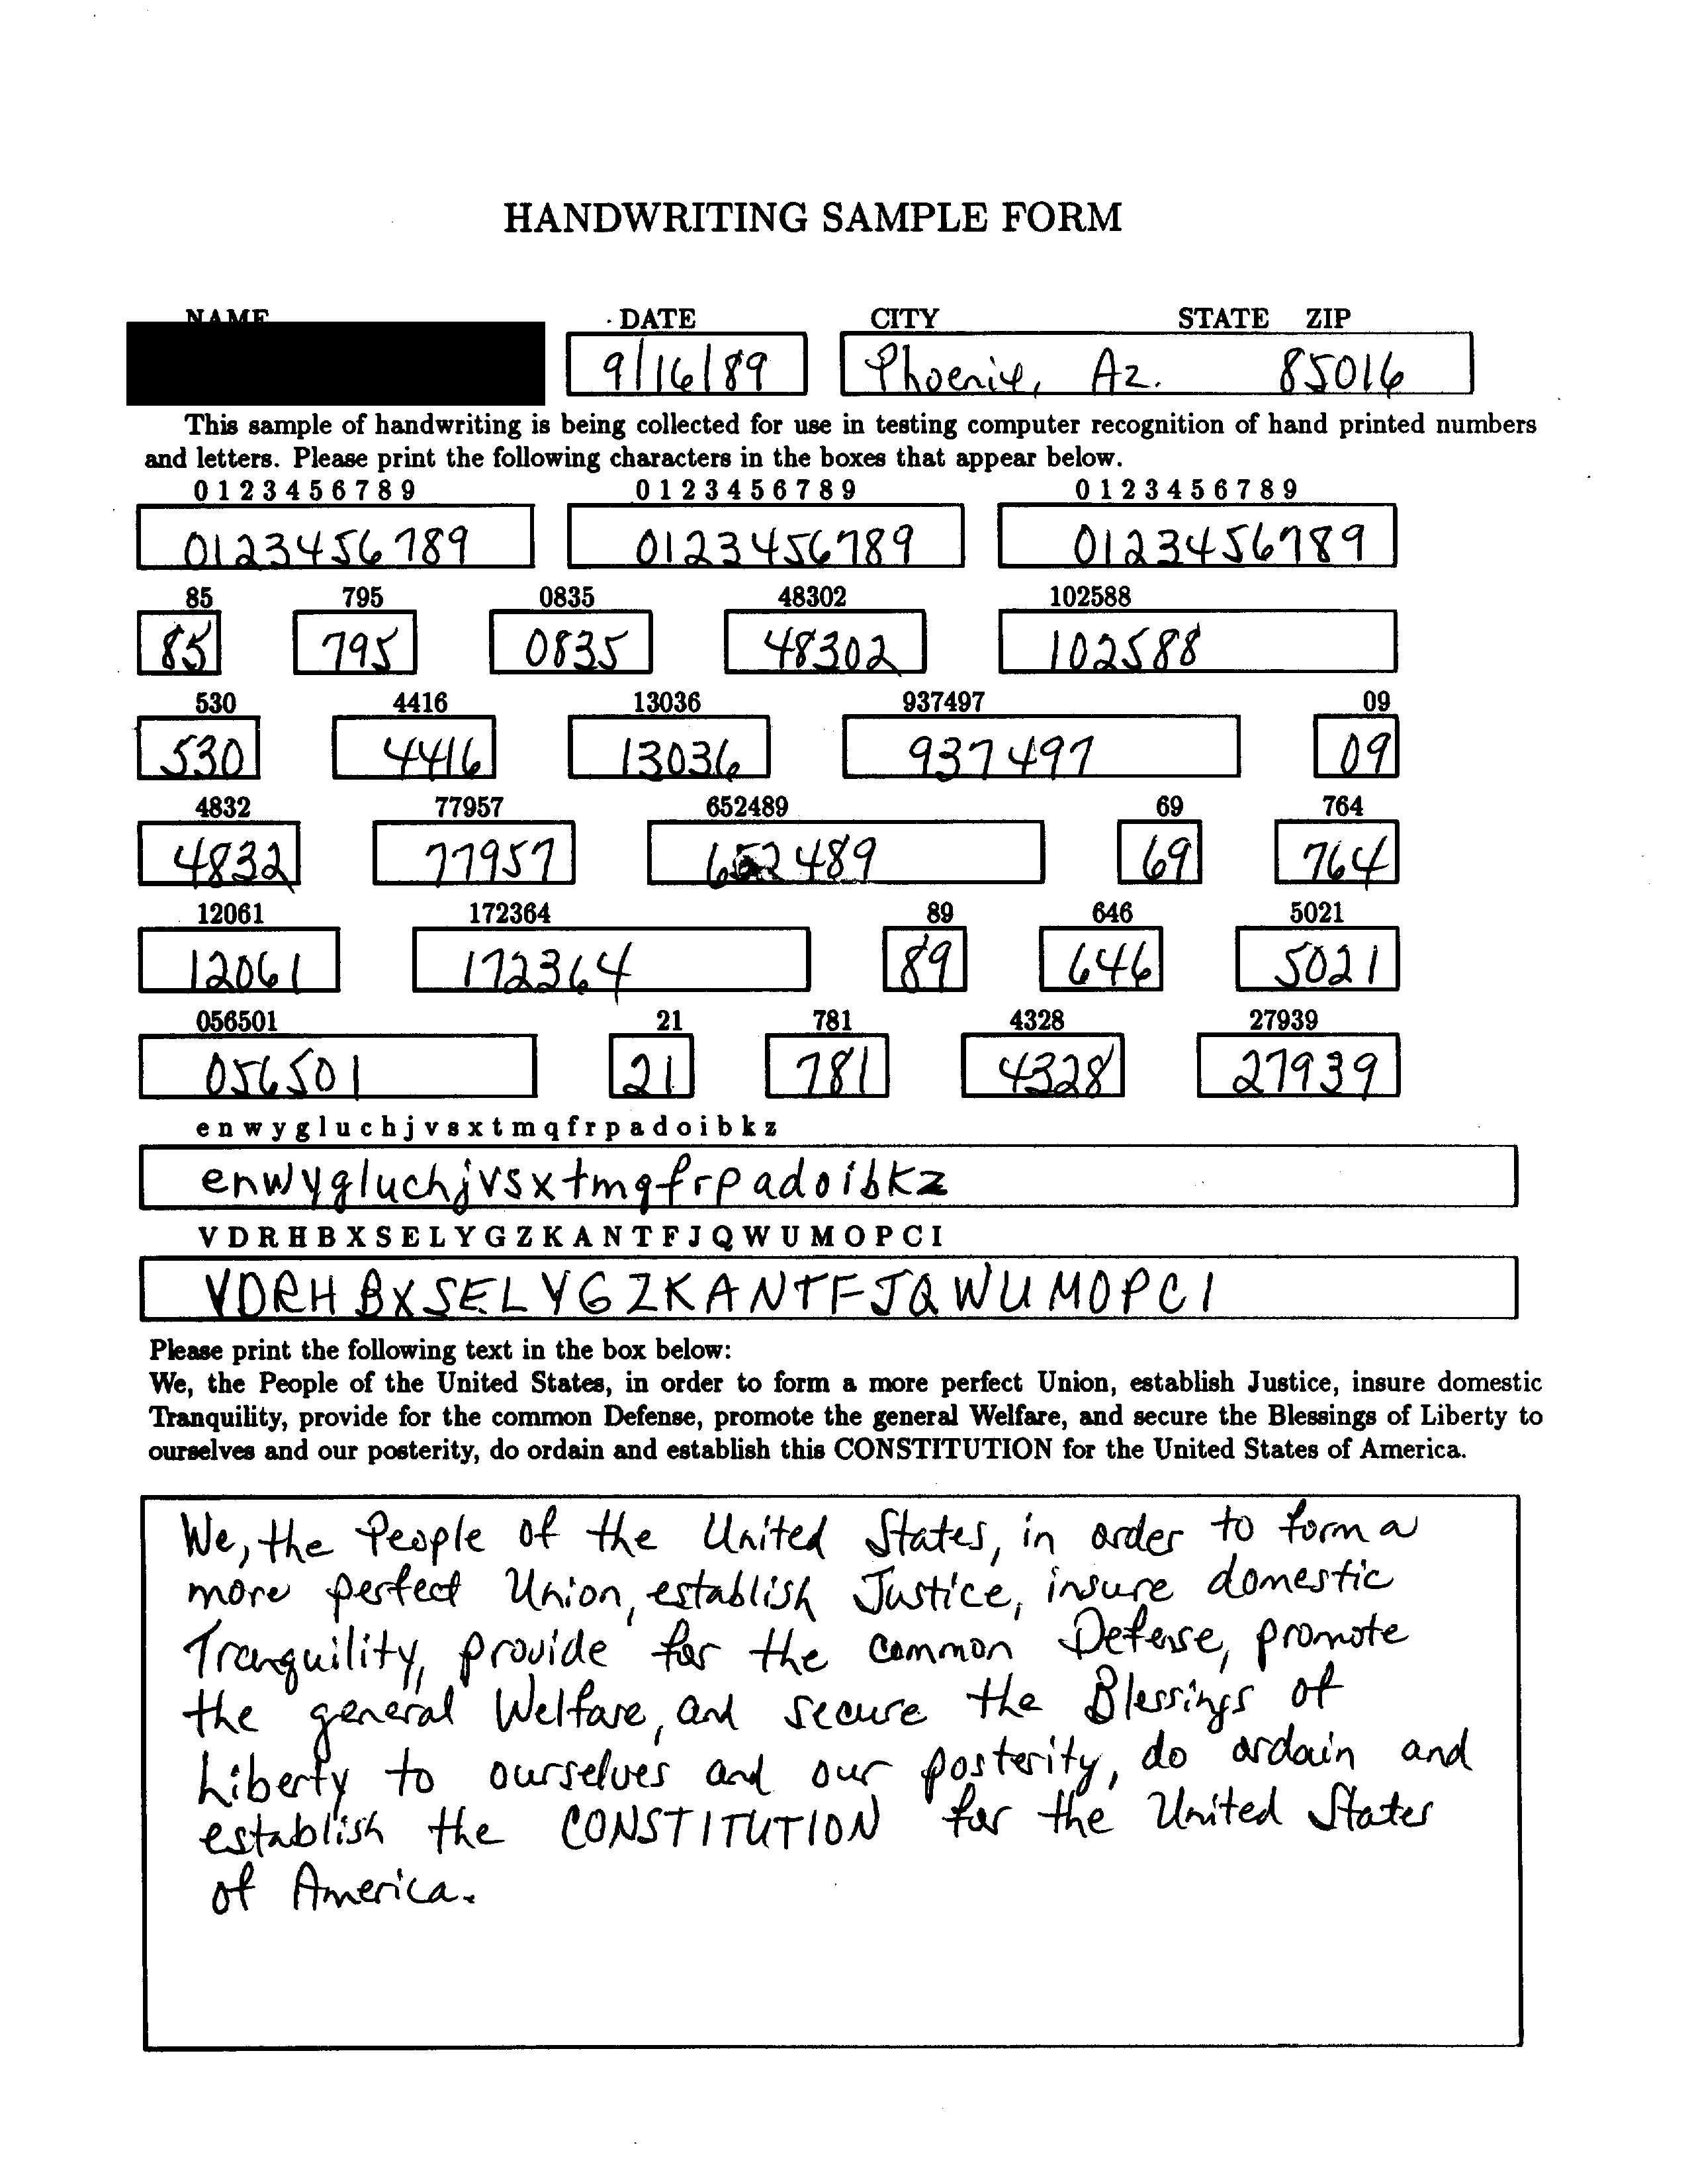 HANDWRITING SAMPLE FORM
NAME DATE CITY STATE ZIP
9/16/89 Phoenix, Az. 85016
This sample of handwriting is being collected for use in testing computer recognition of hand printed numbers
and letters. Please print the following characters in the boxes that appear below.
0 1 2 3 4 5 6 7 8 9 0 1 2 3 4 5 6 7 8 9 0 1 2 3 4 5 6 7 8 9
0123456789 0123456789 0123456789
85 795 0835 48302 102588
85 795 0835 48302 102588
530 4416 13036 937497 09
530 4416 13036 937497 09
4832 77957 652489 69 764
4832 77957 652489 69 764
12061 172364 89 646 5021
12061 172364 89 646 5021
056501 21 781 4328 27939
056501 21 781 4328 27939
e n w y g l u c h j v s x t m q f r p a d o i b k z
enwygluchjvsxtmqfrpadoibkz
V D R H B X S E L Y G Z K A N T F J Q W U M O P C I
VDRHBXSELYGZKANTFJQWUMOPCI
Please print the following text in the box below:
We, the People of the United States, in order to form a more perfect Union, establish Justice, insure domestic
Tranquility, provide for the common Defense, promote the general Welfare, and secure the Blessings of Liberty to
ourselves and our posterity, do ordain and establish this CONSTITUTION for the United States of America.
We, the People of the United States, in order to form a
more perfect Union, establish Justice, insure domestic
Tranquility, provide for the common Defense, promote
the general Welfare, and secure the Blessings of
Liberty to ourselves and our posterity, do ordain and
establish the CONSTITUTION for the United States
of America.